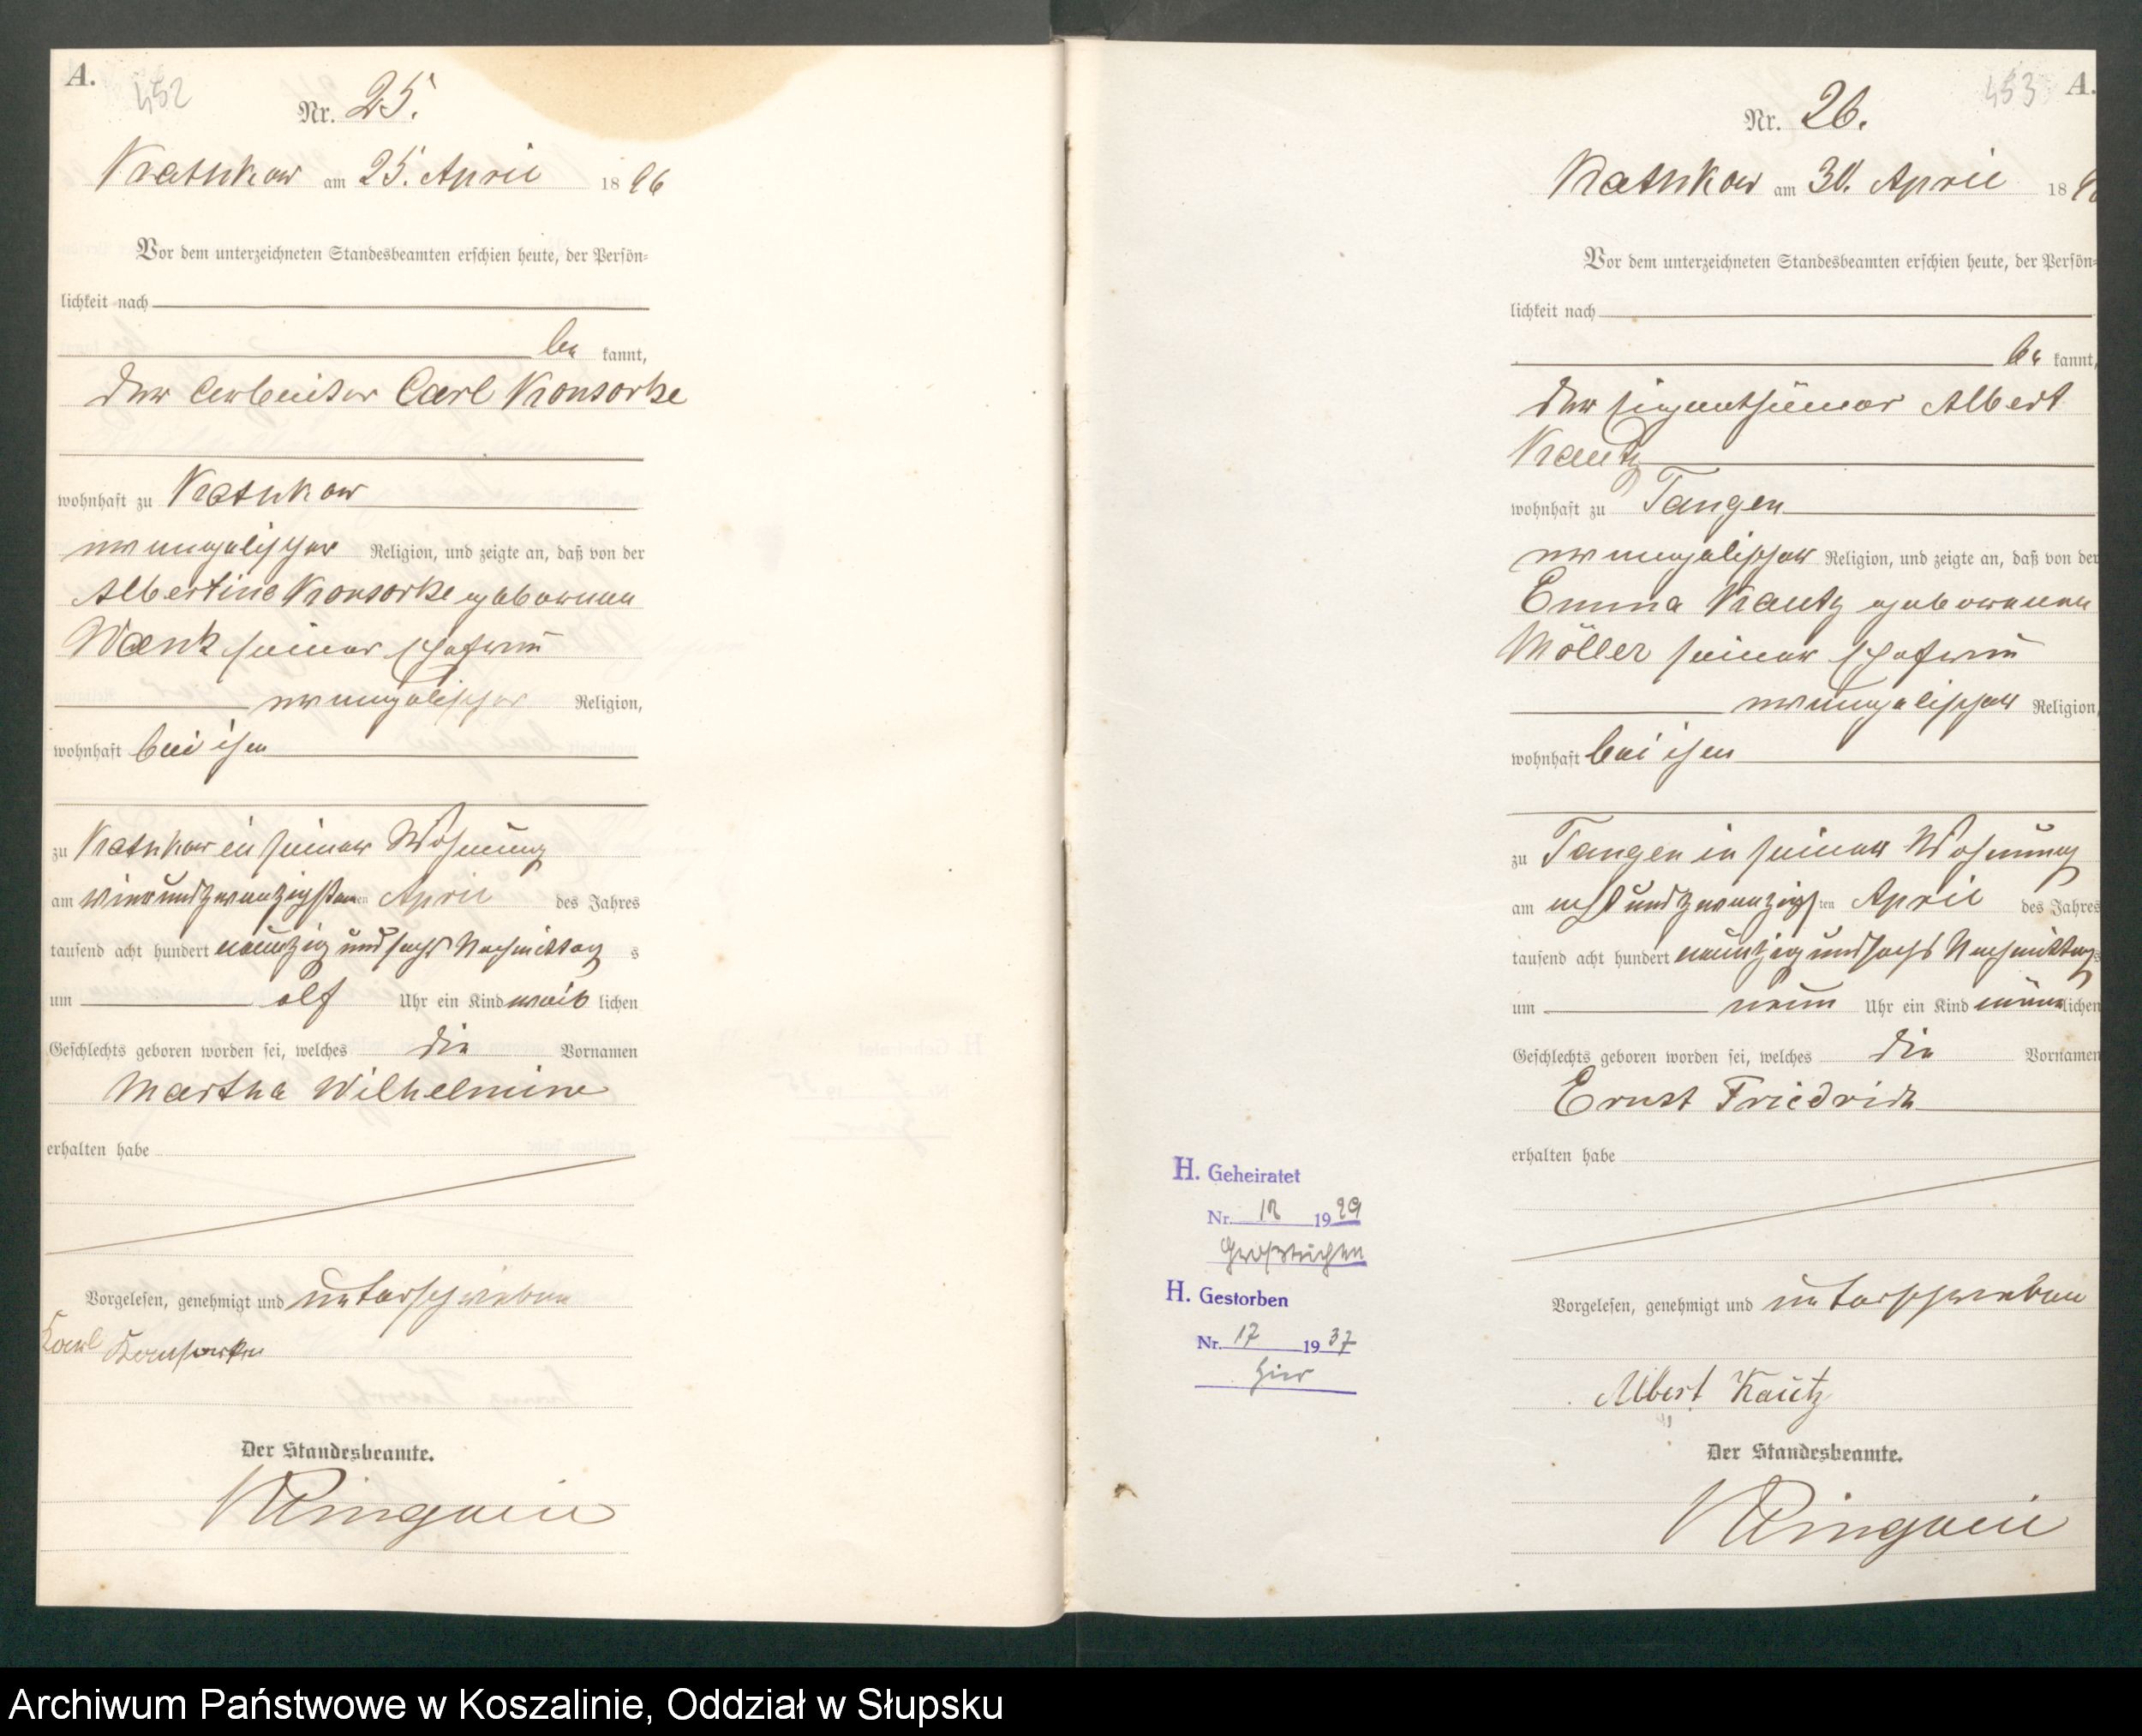 A.
452
Nr. 25.
Kathkow am 25. April 1896
Vor dem unterzeichneten Standesbeamten erschien heute, der Persön=
lichkeit nach
be kannt,
der Arbeiter Carl Konsorke
wohnhaft zu Kathkow
evangelischer Religion, und zeigte an, daß von der
Albertine Konsorke geborenen
Wenk seiner Ehefrau
evangelischer Religion,
wohnhaft bei ihm
zu Kathkow in seiner Wohnung
am vierundzwanzigsten April des Jahres
tausend acht hundert neunzig und sechs Nachmittag s
um elf Uhr ein Kind weib lichen
Geschlechts geboren worden sei, welches die Vornamen
Martha Wilhelmine
erhalten habe
Vorgelesen, genehmigt und unterschrieben
Karl Konsorke
Der Standesbeamte.
453
A.
Nr. 26.
Kathkow am 30. April 18
Vor dem unterzeichneten Standesbeamten erschien heute, der Persön=
lichkeit nach
be kannt,
der Eigenthümer Albert
Kautz
wohnhaft zu Tangen
evangelischer Religion, und zeigte an, daß von der
Emma Kautz geborenen
Möller seiner Ehefrau
evangelischer Religion,
wohnhaft bei ihm
zu Tangen in seiner Wohnung
am achtundzwanzigsten April des Jahres
tausend acht hundert neunzig und sechs Nachmittags
um neun Uhr ein Kind männlichen
Geschlechts geboren worden sei, welches die Vornamen
Ernst Friedrich
erhalten habe
H. Geheiratet
Nr. 12 1929
Großtuchen
H. Gestorben
Nr. 17 1937
hier
Vorgelesen, genehmigt und unterschrieben
Albert Kautz
Der Standesbeamte.
Archiwum Państwowe w Koszalinie, Oddział w Słupsku